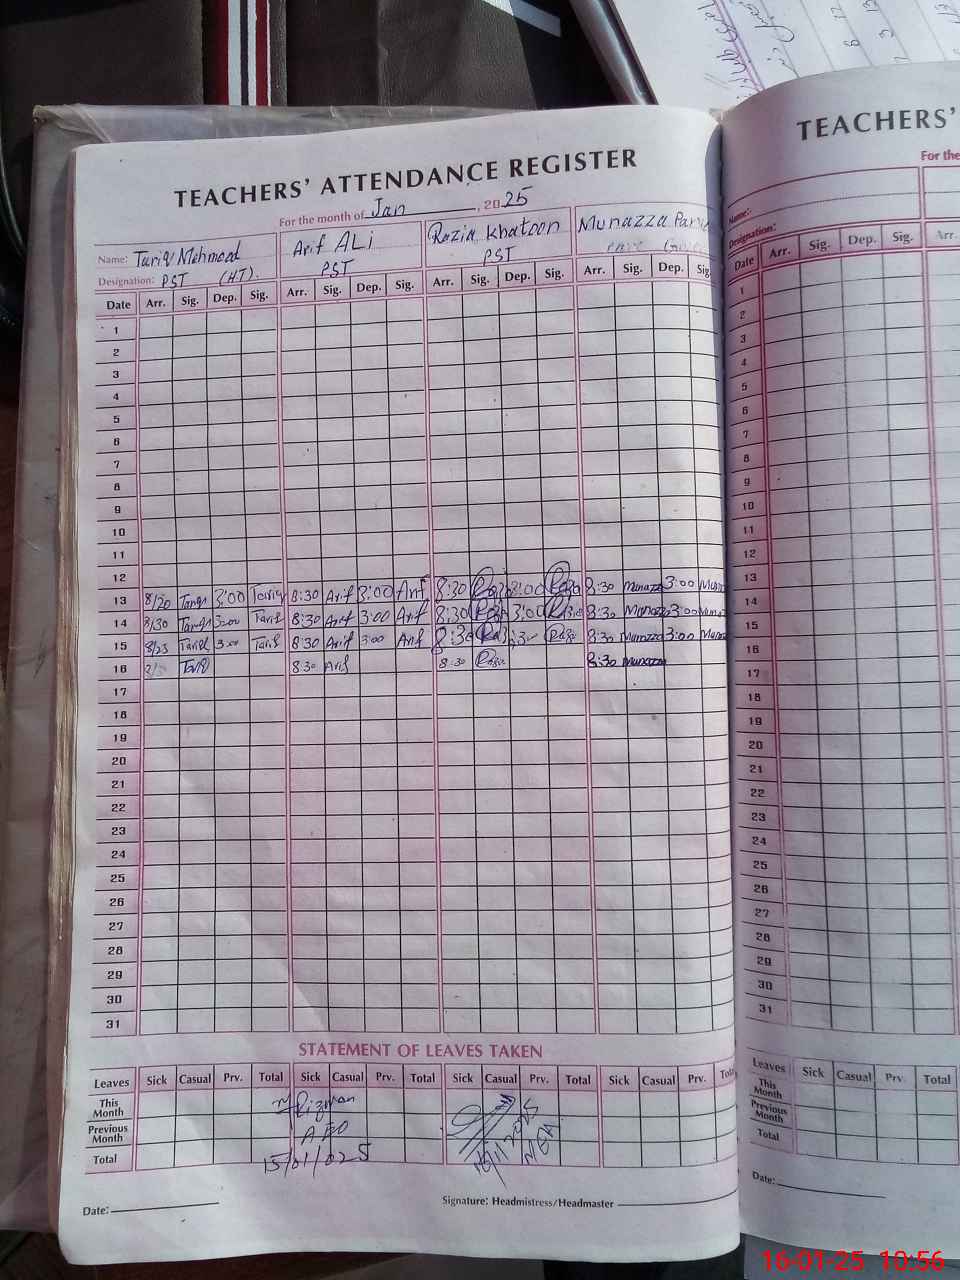 TEACHERS' ATTENDANCE REGISTER
For the month of Jan, 2025
Name: Tariq Mehmood Arif ALi Razia Khatoon Munazza
Designation: PST (HT). PST PST
Date Arr. Sig. Dep. Sig. Arr. Sig. Dep. Sig. Arr. Sig. Dep. Sig. Arr. Sig. Dep. Sig.
1
2
3
4
5
6
7
8
9
10
11
12
13 8/20 Tariq 3:00 Tariq 8:30 Arif 3:00 Arif 8:30 Razia 3:00 Razia 8:30 Munazza 3:00 Munazza
14 8/30 Tariq 3:00 Tariq 8:30 Arif 3:00 Arif 8:30 Razia 3:00 Razia 8:30 Munazza 3:00 Munazza
15 8/25 Tariq 3:00 Tariq 8:30 Arif 3:00 Arif 8:30 Razia Razia 8:30 Munazza 3:00 Munazza
16 Tariq 8:30 Arif 8:30 Razia 8:30 Munazza
17
18
19
20
21
22
23
24
25
26
27
28
29
30
31
STATEMENT OF LEAVES TAKEN
Leaves Sick Casual Prv. Total Sick Casual Prv. Total Sick Casual Prv. Total Sick Casual Prv. Total
This Month Rizwan
Previous Month AEO
Total 15/01/025
Date: Signature: Headmistress/Headmaster
TEACHERS'
For the
Name:
Designation:
Date Arr. Sig. Dep. Sig. Arr.
1
2
3
4
5
6
7
8
9
10
11
12
13
14
15
16
17
18
19
20
21
22
23
24
25
26
27
28
29
30
31
Leaves Sick Casual Prv. Total
This Month
Previous Month
Total
Date:
16-01-25 10:56